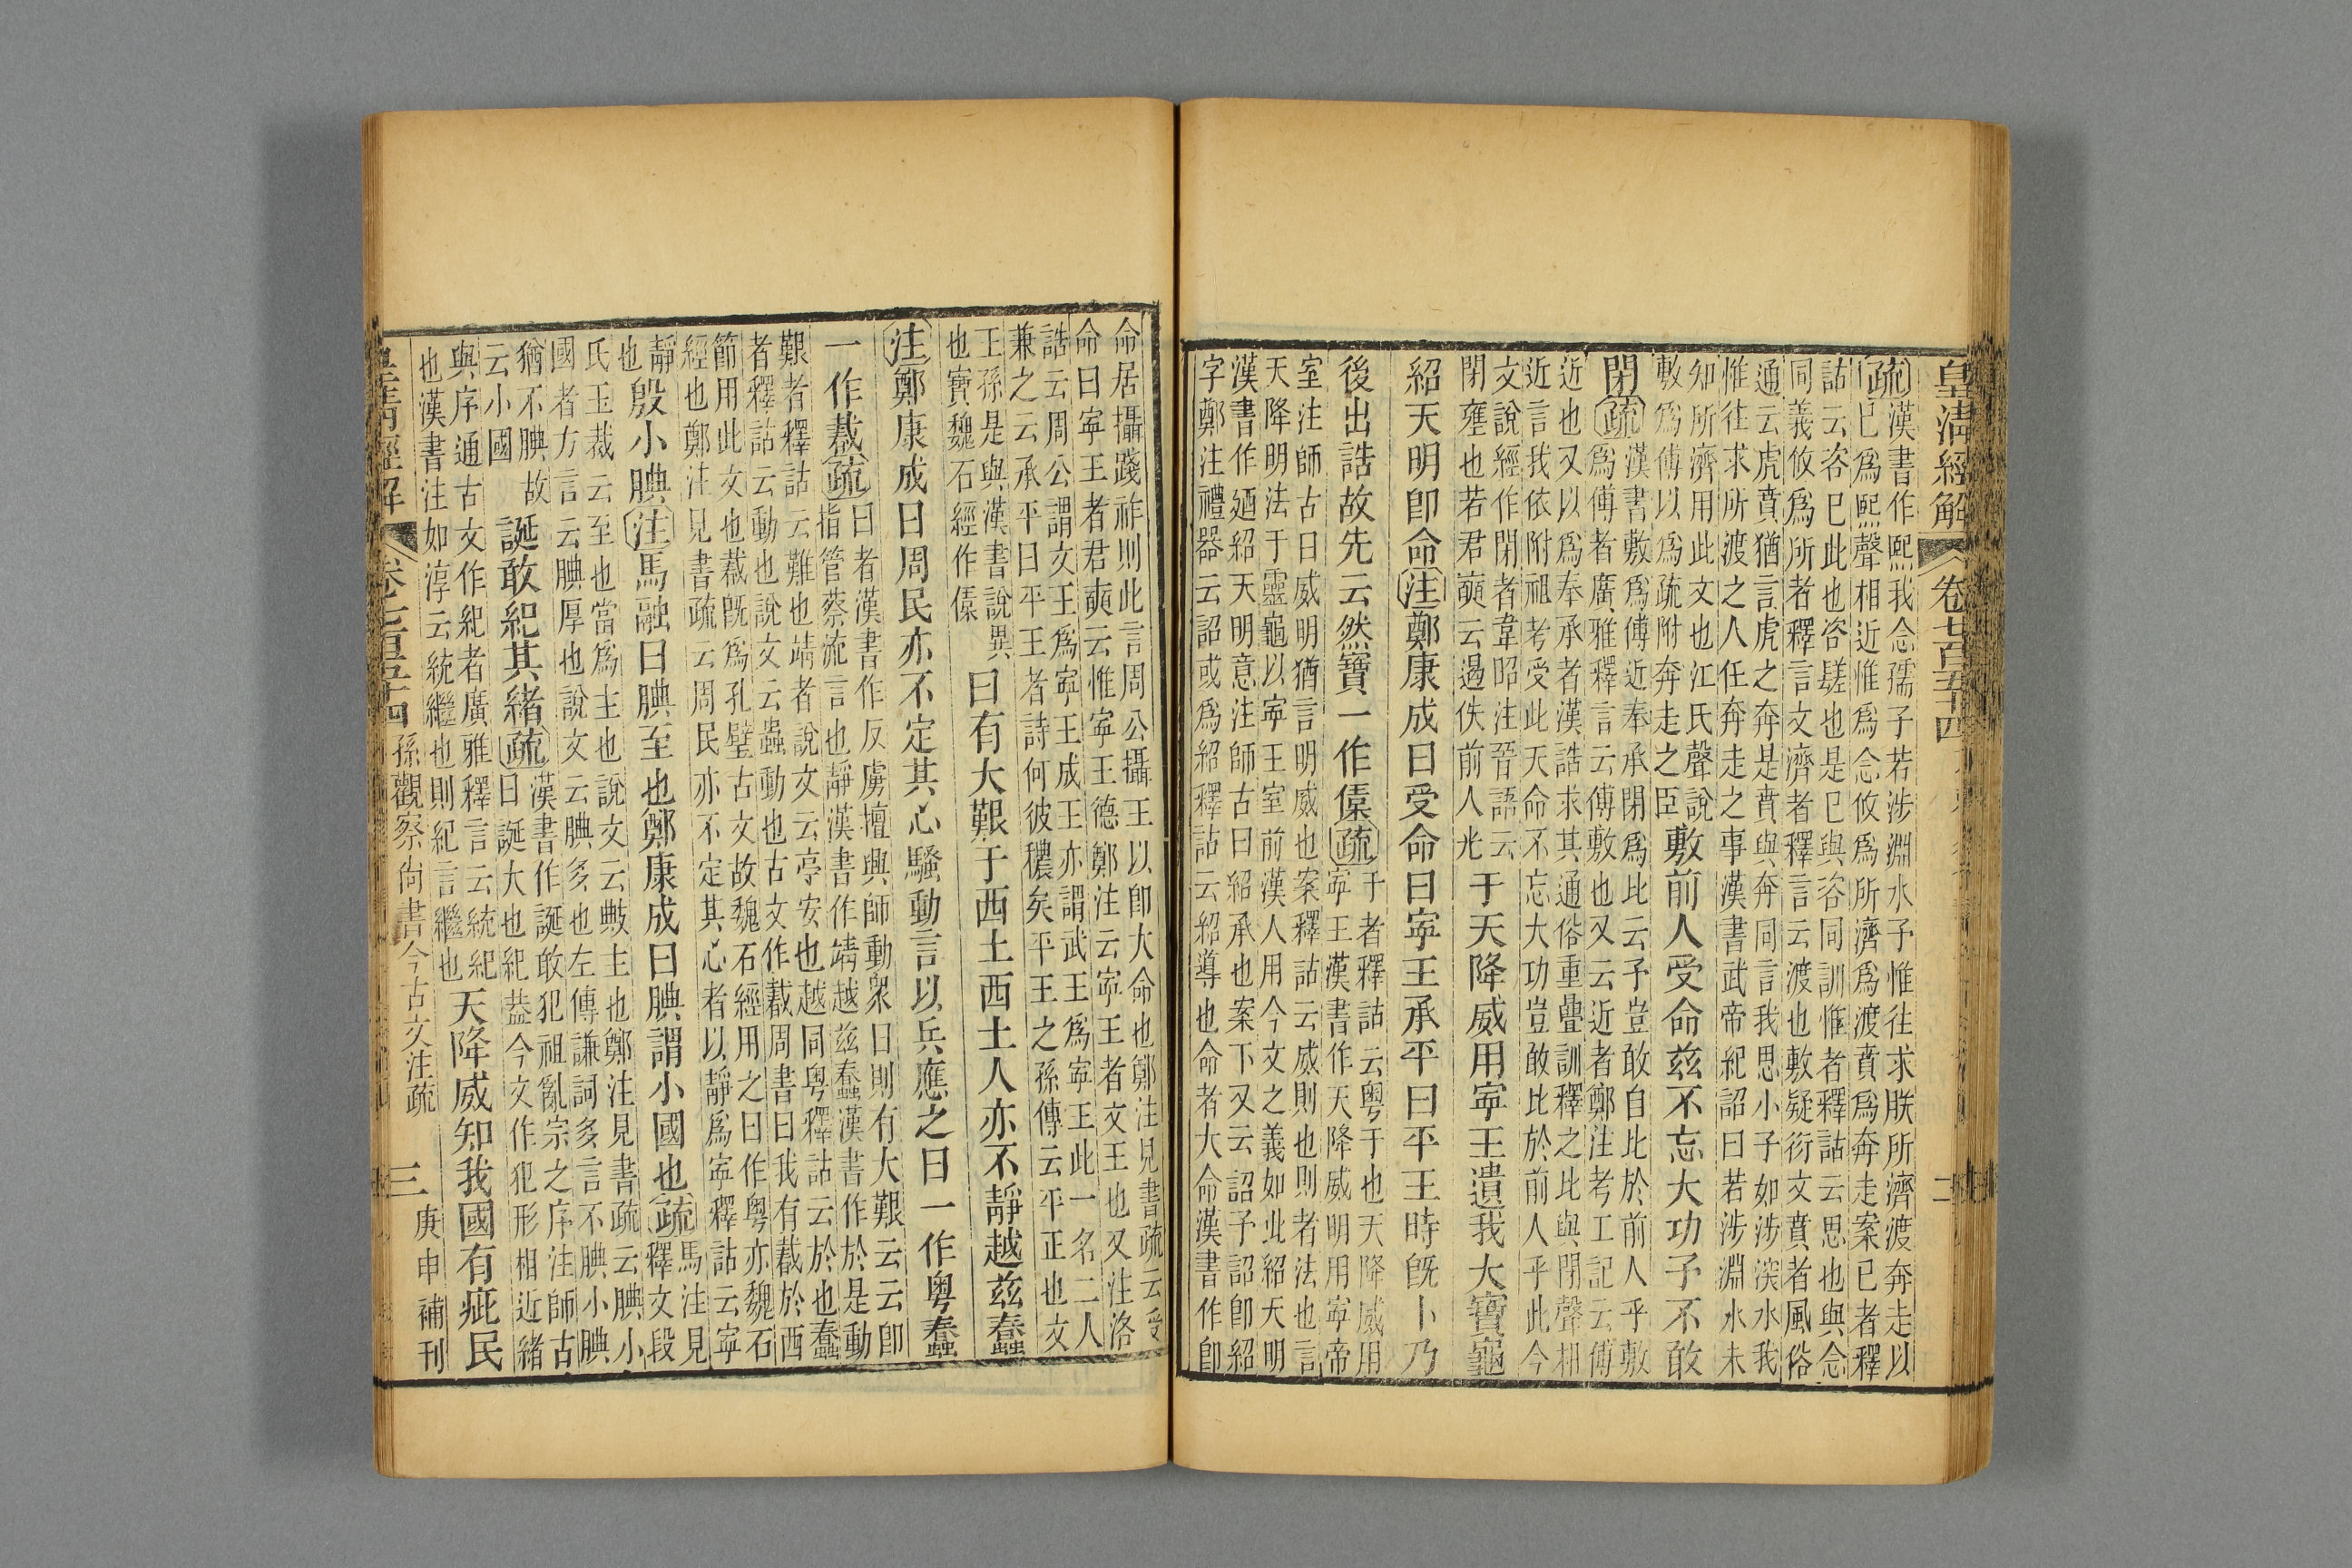 皇清經解
卷七百五十四
二
疏漢書作熙我念孺子若涉淵水予惟往求朕所濟渡奔走以
巳爲熙聲相近惟爲念攸爲所濟爲渡賁爲奔走案已者釋
詁云咨巳此也咨嗟也是巳與咨同訓惟者釋詁云思也與念
同義攸爲所者釋言文濟者釋言云渡也敷疑衍文賁者風俗
通云虎賁猶言虎之奔是賁與奔同言我思小子如涉淡水我
惟往求所渡之人任奔走之事漢書武帝紀詔曰若涉淵水未
知所濟用此文也江氏聲說
敷爲傅以爲疏附奔走之臣
敷前人受命兹不忘大功予不敢
閉
疏漢書敷爲傅近奉承閉爲比云予豈敢自比於前人乎敷
爲傅者廣雅釋言云傅敷也又云近者鄭注考工記云傅
近也又以爲奉承者漢誥求其通俗重疊訓釋之比與閉聲相
近言我依附祖考受此天命不忘大功豈敢比於前人乎此今
文說經作閉者韋昭注晉語云
閉壅也若君奭云遏佚前人光
于天降威用寜王遺我大寶龜
紹天明卽命注鄭康成曰受命曰寜王承平曰平王時旣卜乃
後出誥故先云然寶一作㒽疏
于者釋詁云粤于也天降威用
寜王漢書作天降威明用寜帝
室注師古曰威明猶言明威也案釋詁云威則也則者法也言
天降明法于靈龜以寜王室前漢人用今文之義如此紹天明
漢書作廼紹天明意注師古曰紹承也案下又云詔予詔卽紹
字鄭注禮器云詔或爲紹釋詁云紹導也命者大命漢書作卽
命居攝踐祚則此言周公攝王以卽大命也鄭注見書疏云受
命曰寜王者君奭云惟寜王德鄭注云寜王者文王也又注洛
誥云周公謂文王爲寜王成王亦謂武王爲寜王此一名二人
兼之云承平曰平王者詩何彼穠矣平王之孫傳云平正也文
王孫是與漢書說異
也寶魏石經作㒽
曰有大艱于西土西土人亦不靜越兹蠢
注鄭康成曰周民亦不定其心騷動言以兵應之曰一作粤蠢
一作𢧵疏
曰者漢書作反虜壇興師動衆曰則有大艱云云卽
指管蔡流言也靜漢書作靖越兹蠢漢書作於是動
艱者釋詁云難也靖者說文云亭安也越同粤釋詁云於也蠢
者釋詁云動也說文云蟲動也古文作𢧵周書曰我有𢧵於西
節用此文也𢧵旣爲孔壁古文故魏石經用之曰作粤亦魏石
經也鄭注見書疏云周民亦不定其心者以靜爲寜釋詁云寜
靜
也
殷小腆注馬融曰腆至也鄭康成曰腆謂小國也疏
馬注見
釋文段
氏玉裁云至也當爲主也說文云㪜主也鄭注見書疏云腆小
國者方言云腆厚也說文云腆多也左傳謙詞多言不腆小腆
猶不腆故
云小國
誕敢紀其緒疏
漢書作誕敢犯祖亂宗之序注師古
曰誕大也紀葢今文作犯形相近緒
與序通古文作紀者廣雅釋言云統紀
也漢書注如淳云統繼也則紀言繼也
天降威知我國有疵民
皇清經解
卷七百五十四
孫觀察尚書今古文注疏
三
庚申補刊